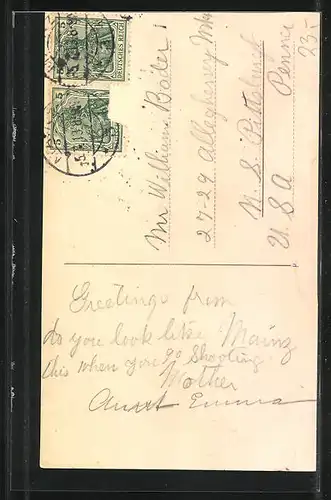 5 5
DEUTSCHES REICH
5 5
23.-
Mr William Bader
27-29 Allegheney Mkt
N. S. Pittsburg
Penna
U. S. A
Greetings from
do you look like Mainz
this when you go shooting
Mother
Aunt Emma